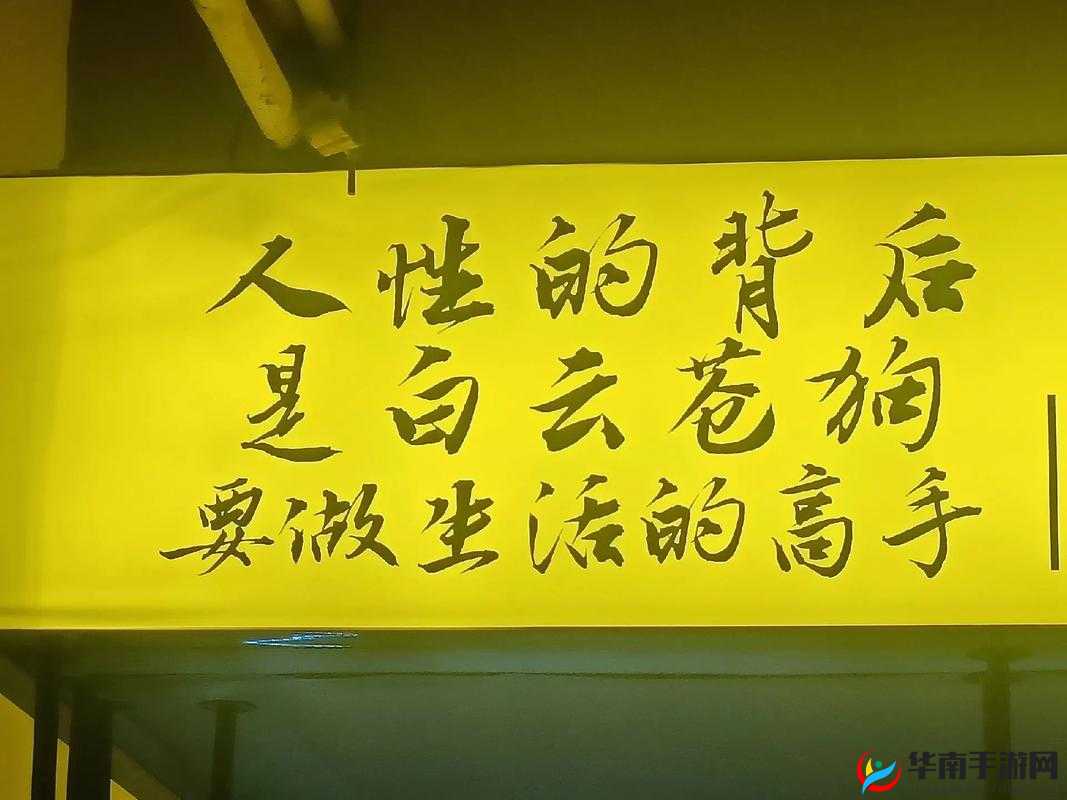 人性的背后
是白云苍狗
要做生活的高手
华南手游网